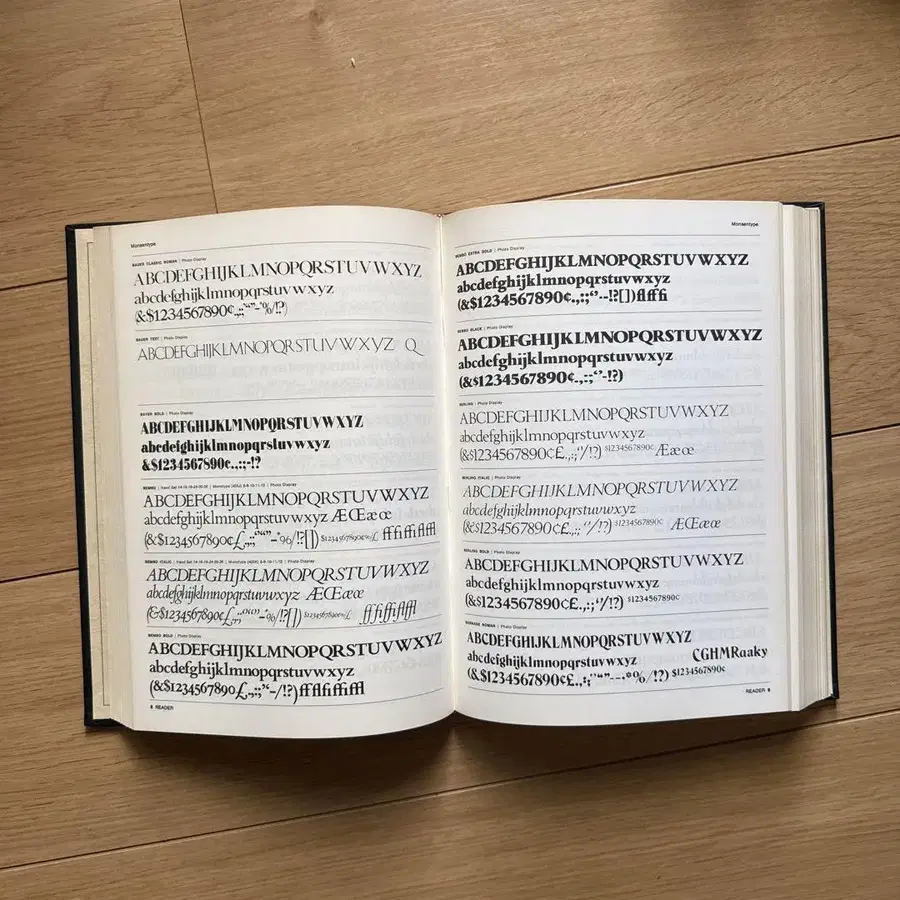 Monsentype
BAUER CLASSIC ROMAN | Photo Display
ABCDEFGHIJKLMNOPQRSTUVWXYZ
abcdefghijklmnopqrstuvwxyz
(&$1234567890¢.,:;‘’“”-*%/!?)
BAUER TEXT | Photo Display
ABCDEFGHIJKLMNOPQRSTUVWXYZ Q
BAYER BOLD | Photo Display
ABCDEFGHIJKLMNOPQRSTUVWXYZ
abcdefghijklmnopqrstuvwxyz
&$1234567890¢.,:;-!?
BEMBO | Hand Set | Photo Display
ABCDEFGHIJKLMNOPQRSTUVWXYZ
abcdefghijklmnopqrstuvwxyz ÆŒæœ
(&$1234567890£.,:;‘’“”-*%/!?[]) $1234567890%/£ fffiffiflffl
BEMBO ITALIC | Photo Display
ABCDEFGHIJKLMNOPQRSTUVWXYZ
abcdefghijklmnopqrstuvwxyz ÆŒæœ
(&$1234567890£.,:;‘’“”-*%/!?[])
BEMBO BOLD | Photo Display
ABCDEFGHIJKLMNOPQRSTUVWXYZ
abcdefghijklmnopqrstuvwxyz
(&$1234567890£.,:;‘’-/!?)
8 READER
Monsentype
BEMBO EXTRA BOLD | Photo Display
ABCDEFGHIJKLMNOPQRSTUVWXYZ
abcdefghijklmnopqrstuvwxyz
(&$1234567890¢.,:;‘’--!?[])
BEMBO BLACK | Photo Display
ABCDEFGHIJKLMNOPQRSTUVWXYZ
abcdefghijklmnopqrstuvwxyz
(&$1234567890¢.,:;‘’-!?)
BERLING | Photo Display
ABCDEFGHIJKLMNOPQRSTUVWXYZ
abcdefghijklmnopqrstuvwxyz
(&$1234567890¢£.,:;‘’/!?) $1234567890¢ Æææœ
BERLING ITALIC | Photo Display
ABCDEFGHIJKLMNOPQRSTUVWXYZ
abcdefghijklmnopqrstuvwxyz
(&$1234567890¢£.,:;‘’/!?) $1234567890¢ ÆŒæœ
BERLING BOLD | Photo Display
ABCDEFGHIJKLMNOPQRSTUVWXYZ
abcdefghijklmnopqrstuvwxyz
(&$1234567890¢£.,:;‘’/!?) $1234567890¢
ROMAN | Photo Display
ABCDEFGHIJKLMNOPQRSTUVWXYZ
abcdefghijklmnopqrstuvwxyz CGHMRaaky
(&$1234567890¢£.,:;‘’“”--·*%/!?) $1234567890¢
READER